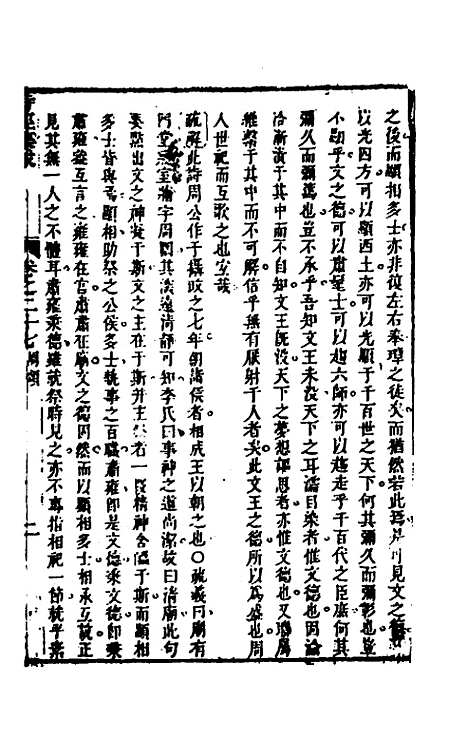 之後而顯相多士亦非復左右奉璋之徒矣而猶然若此焉可見文之德
以光四方可以顯西土亦可以光顯于千百世之天下何其彌久而彌彰也豈
不勛乎文之德可以肅髦士可以趨六師亦可以趨走乎千百代之臣庶何其
彌久而彌篤也豈不承乎吾知文王未沒天下之耳濡目染者惟文德也固淪
洽漸漬于其中而不自知文王既沒天下之夢想謳思者亦惟文德也又聯屬
維繫于其中而不可解信乎無有厭射于人者矣此文王之德所以為盛也周
人世祀而互歌之也宜哉
疏解此詩周公作于攝政之七年朝諸侯者相成王以朝之也○疏義曰廟有
門堂寢室牆宇周圍其深遠清靜可知李氏曰事神之道尚潔故曰清廟此句
要點出文之神凝于斯文之主在于斯并主祭者一段精神全傴于斯而顯相
多士皆與焉顯相助祭之公侯多士執事之百職肅雍即是文德秉文德即秉
肅雍雍互言之雍雍在宮肅肅在廟文之德固然而以顯相多士相承互就正
見其無一人之不體耳肅雍秉德雖就祭時見之亦不專指相祀一節就平素
卷之二十七 周頌 二